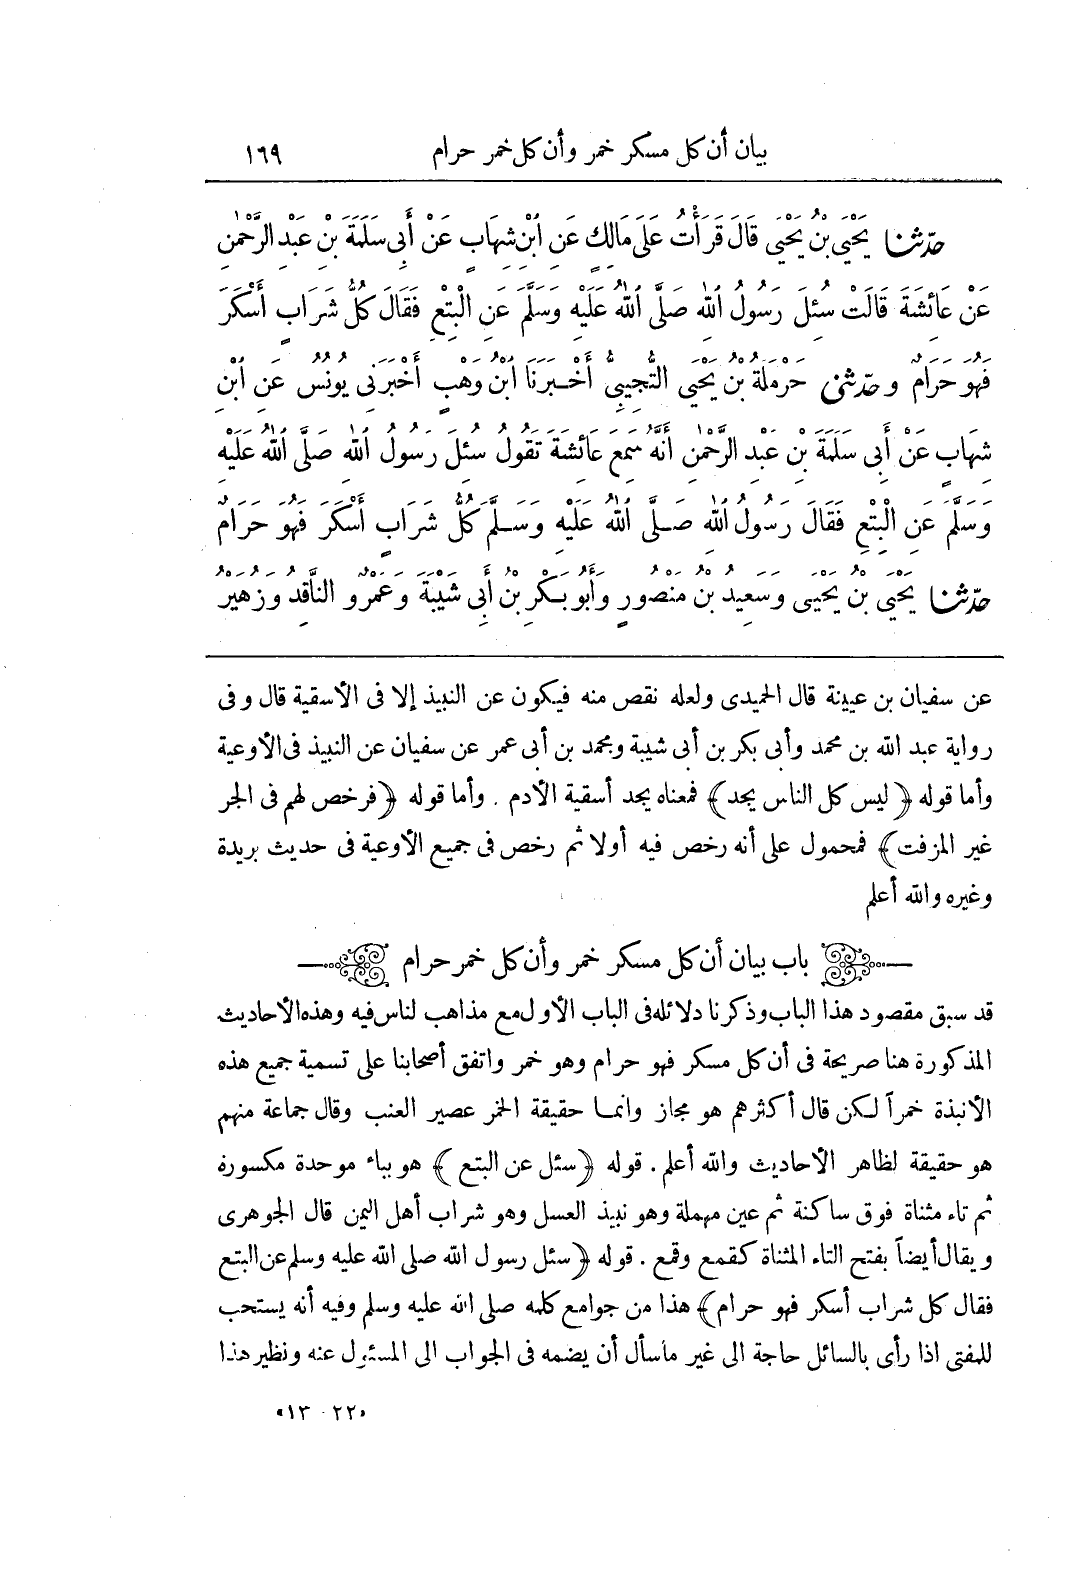 بيان أن كل مسكر خمر وأن كل خمر حرام ١٦٩
حَدَّثَنَا يَحْيَى بْنُ يَحْيَى قَالَ قَرَأْتُ عَلَى مَالِكٍ عَنِ ابْنِ شِهَابٍ عَنْ أَبِي سَلَمَةَ بْنِ عَبْدِ الرَّحْمٰنِ
عَنْ عَائِشَةَ قَالَتْ سُئِلَ رَسُولُ اللهِ صَلَّى اللهُ عَلَيْهِ وَسَلَّمَ عَنِ الْبِتْعِ فَقَالَ كُلُّ شَرَابٍ أَسْكَرَ
فَهُوَ حَرَامٌ وحَدَّثَنِي حَرْمَلَةُ بْنُ يَحْيَى التُّجِيبِيُّ أَخْبَرَنَا ابْنُ وَهْبٍ أَخْبَرَنِي يُونُسُ عَنِ ابْنِ
شِهَابٍ عَنْ أَبِي سَلَمَةَ بْنِ عَبْدِ الرَّحْمٰنِ أَنَّهُ سَمِعَ عَائِشَةَ تَقُولُ سُئِلَ رَسُولُ اللهِ صَلَّى اللهُ عَلَيْهِ
وَسَلَّمَ عَنِ الْبِتْعِ فَقَالَ رَسُولُ اللهِ صَلَّى اللهُ عَلَيْهِ وَسَلَّمَ كُلُّ شَرَابٍ أَسْكَرَ فَهُوَ حَرَامٌ
حَدَّثَنَا يَحْيَى بْنُ يَحْيَى وَسَعِيدُ بْنُ مَنْصُورٍ وَأَبُو بَكْرِ بْنُ أَبِي شَيْبَةَ وَعَمْرٌو النَّاقِدُ وَزُهَيْرُ
عن سفيان بن عيينة قال الحميدى ولعله نقص منه فيكون عن النبيذ إلا فى الأسقية قال وفى
رواية عبد الله بن محمد وأبى بكر بن أبى شيبة ومحمد بن أبى عمر عن سفيان عن النبيذ فى الأوعية
وأما قوله ﴿ليس كل الناس يجد﴾ فمعناه يجد أسقية الأدم . وأما قوله ﴿فرخص لهم فى الجر
غير المزفت﴾ فمحمول على أنه رخص فيه أولا ثم رخص فى جميع الأوعية فى حديث بريدة
وغيره والله أعلم
باب بيان أن كل مسكر خمر وأن كل خمر حرام
قد سبق مقصود هذا الباب وذكرنا دلائله فى الباب الأول مع مذاهب لناس فيه وهذه الأحاديث
المذكورة هنا صريحة فى أن كل مسكر فهو حرام وهو خمر واتفق أصحابنا على تسمية جميع هذه
الأنبذة خمراً لكن قال أكثرهم هو مجاز وانما حقيقة الخمر عصير العنب وقال جماعة منهم
هو حقيقة لظاهر الأحاديث والله أعلم . قوله ﴿سئل عن البتع﴾ هو بباء موحدة مكسورة
ثم تاء مثناة فوق ساكنة ثم عين مهملة وهو نبيذ العسل وهو شراب أهل اليمن قال الجوهرى
ويقال أيضاً بفتح التاء المثناة كقمع وقمع . قوله ﴿سئل رسول الله صلى الله عليه وسلم عن البتع
فقال كل شراب أسكر فهو حرام﴾ هذا من جوامع كلمه صلى الله عليه وسلم وفيه أنه يستحب
للمفتى اذا رأى بالسائل حاجة الى غير ما سأل أن يضمه فى الجواب الى المسئول عنه ونظير هذا
«٢٢ - ١٣»